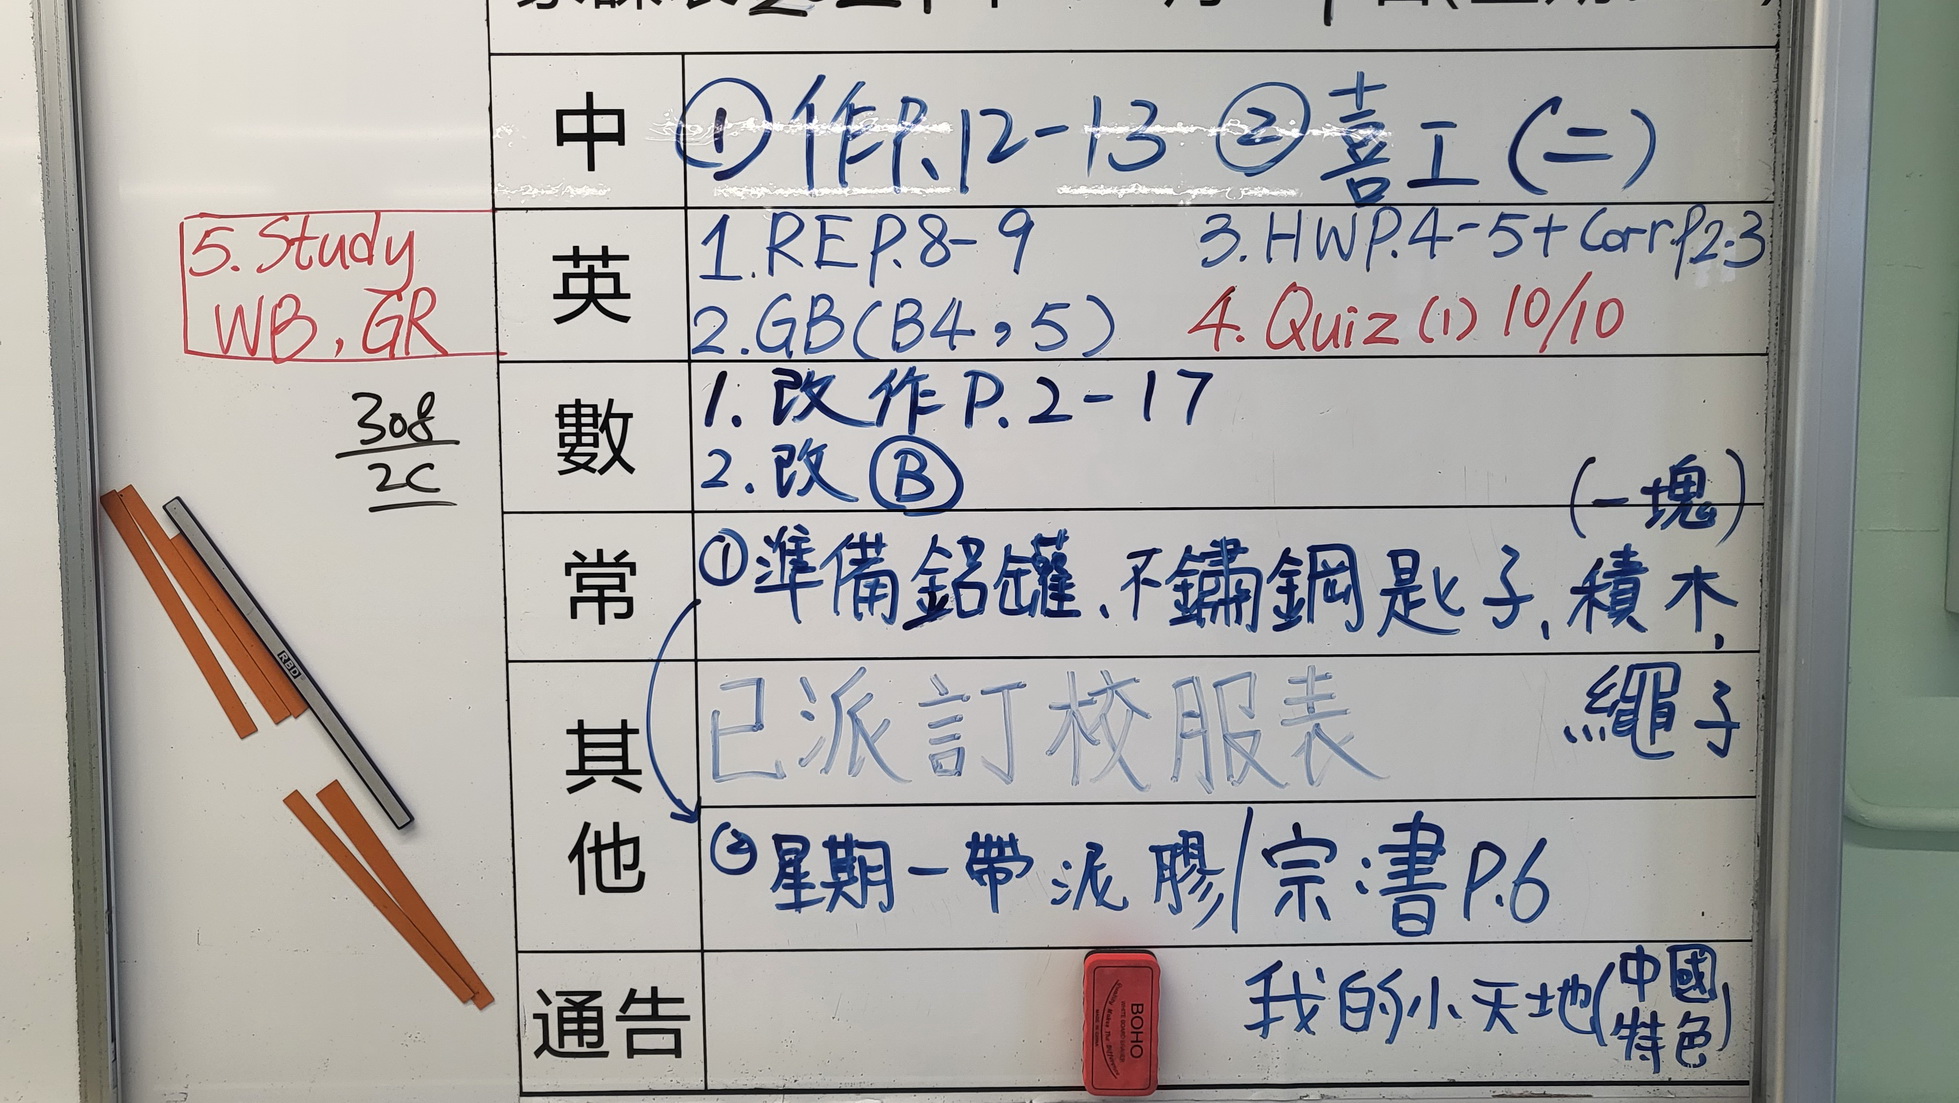 中
①作P.12-13 ②喜工(二)
英
1.REP.8-9
2.GB(B4,5)
3.HWP.4-5+Corr.P2.3
4.Quiz(1)10/10
5.Study
WB,GR
數
1.改作P.2-17
2.改Ⓑ
308
2C
常
①準備鋁罐、不鏽鋼匙子、積木、
(一塊)
繩子
其他
已派訂校服表
②星期一帶泥膠/宗書P.6
通告
我的小天地(中國特色)
RBD
BOHO